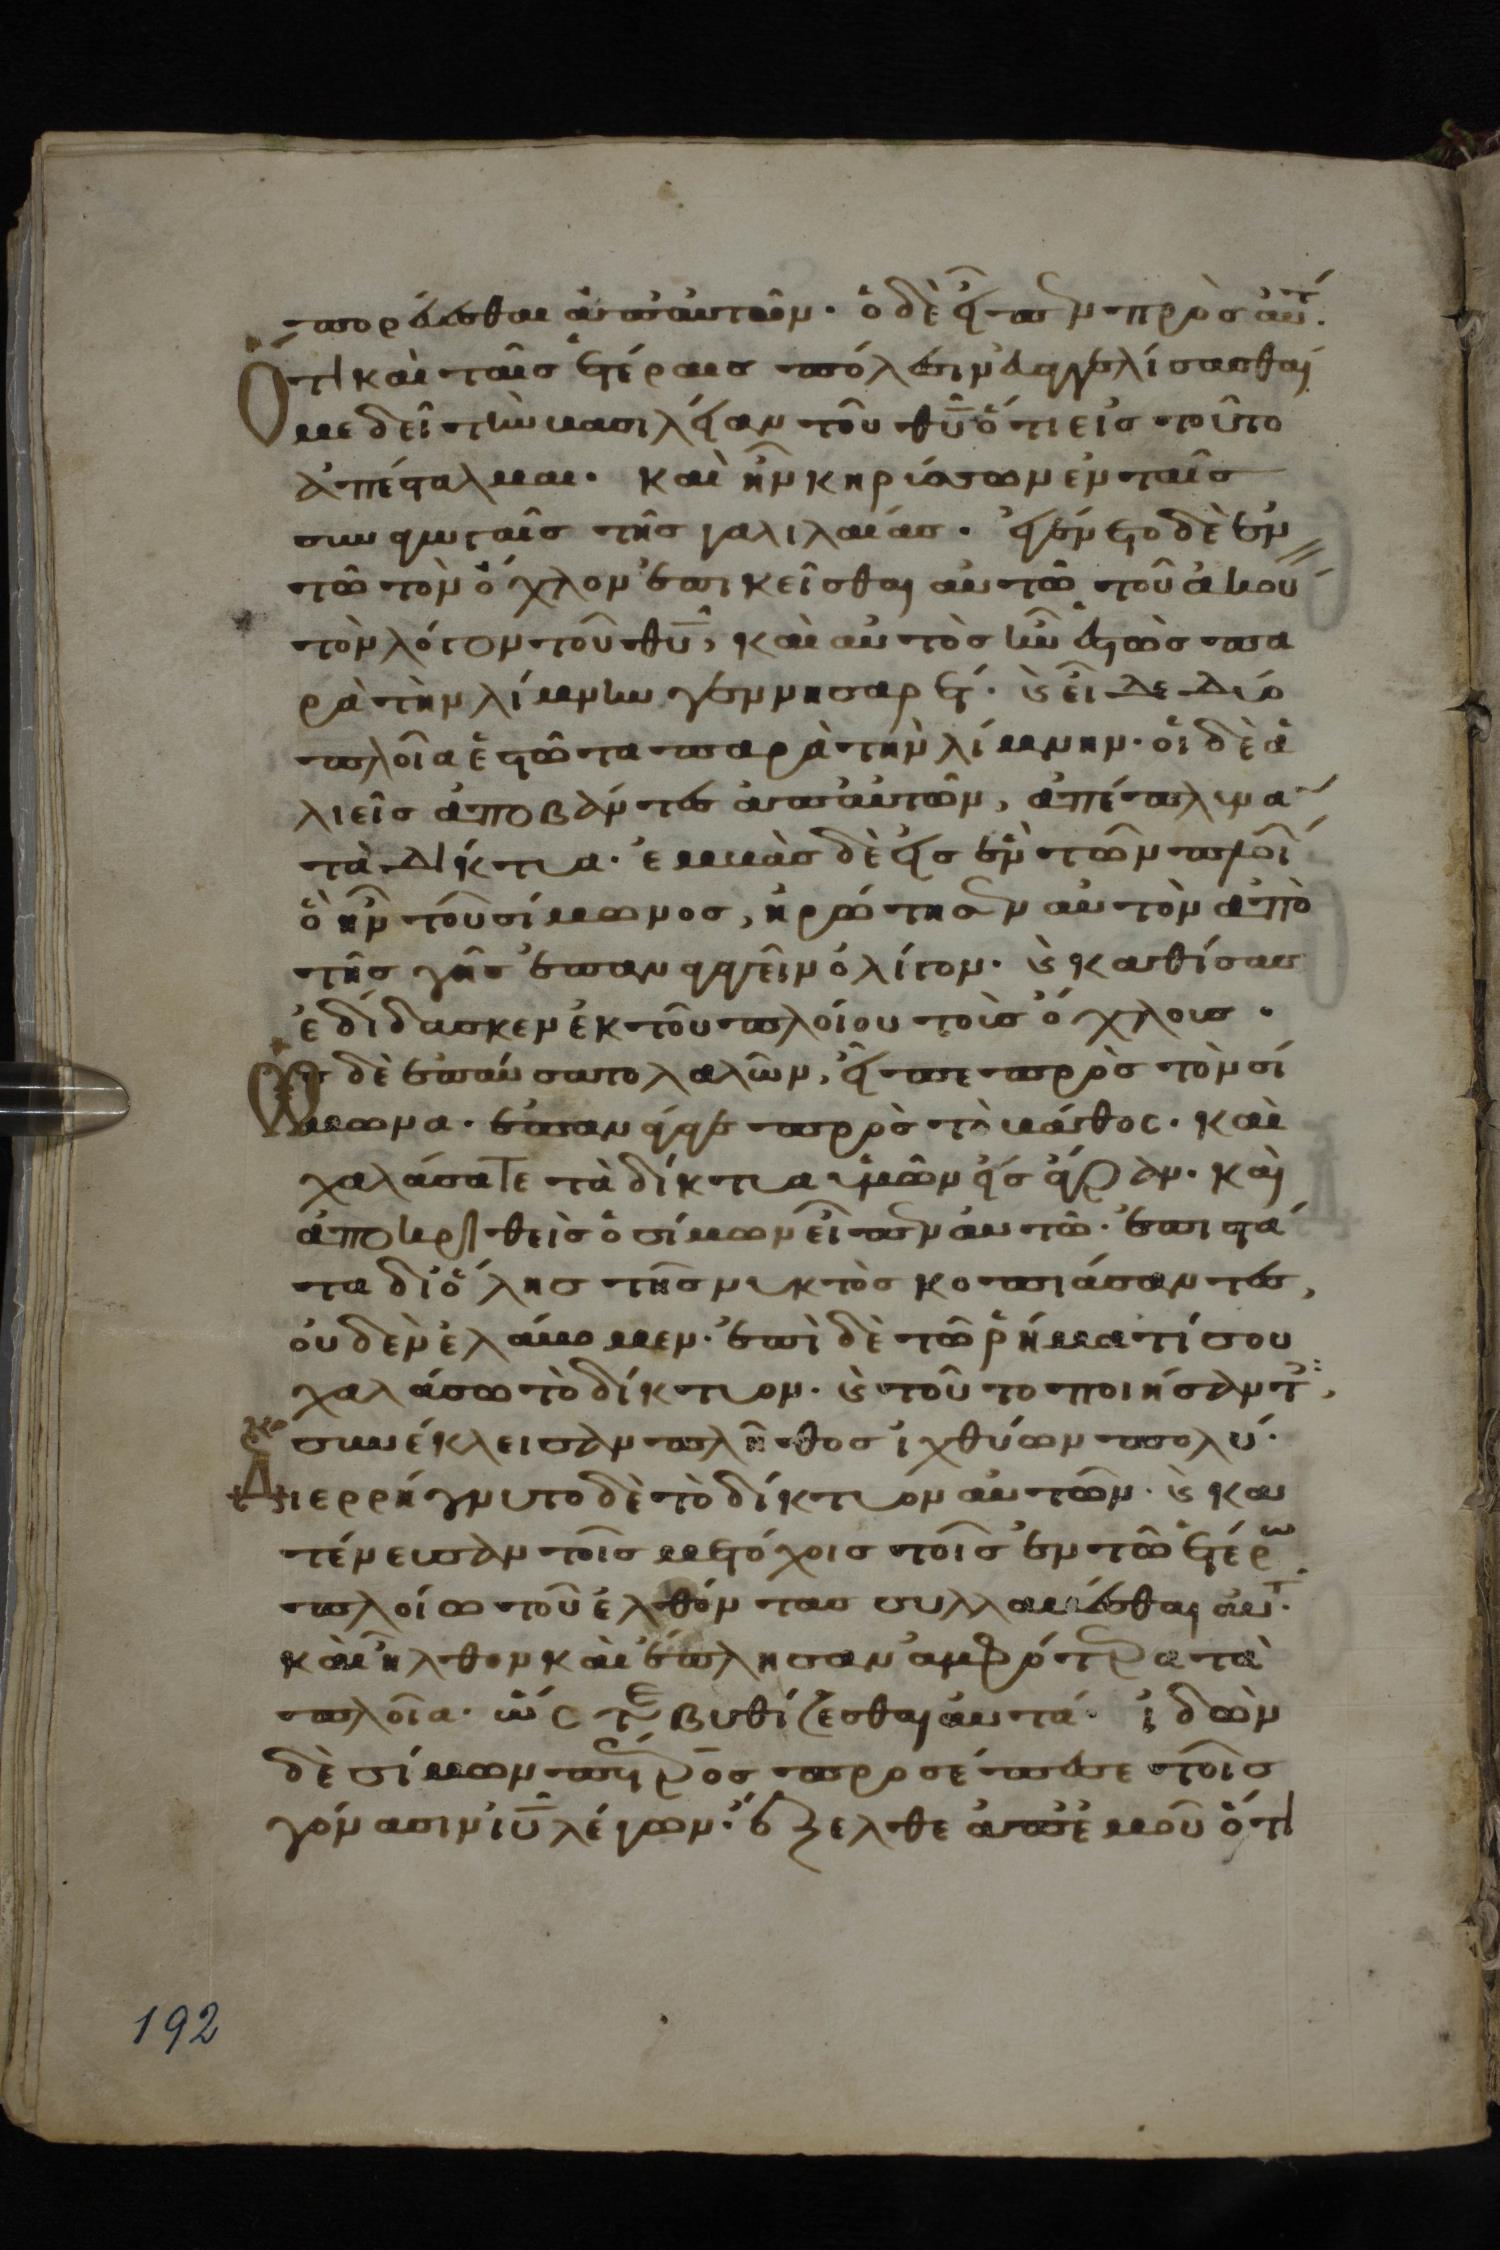 πορεύεσθαι ἀπ' αὐτῶν. ὁ δὲ εἶπεν πρὸς αὐτ.
Ὅτι καὶ ταῖς ἑτέραις πόλεσιν εὐαγγελίσασθαί
με δεῖ τὴν βασιλείαν τοῦ θῦ ὅτι εἰς τοῦτο
ἀπέσταλμαι. καὶ ἦν κηρύσσων ἐν ταῖς
συναγωγαῖς τῆς γαλιλαίας. ἐγένετο δὲ ἐν
τῶ τὸν ὄχλον ἐπικεῖσθαι αὐτῶ τοῦ ἀκού
τὸν λόγον τοῦ θῦ, καὶ αὐτὸς ἦν ἑστὼς πα
ρὰ τὴν λίμνην γεννησαρετ. ϗ εἶδε δύο
πλοῖα ἑστῶτα παρὰ τὴν λίμνην. οἱ δὲ ἁ
λιεῖς ἀποβάντες ἀπ' αὐτῶν, ἀπέπλυνα
τὰ δίκτυα. ἐμβὰς δὲ εἰς ἓν τῶν πλοί
ὃ ἦν τοῦ σίμωνος, ἠρώτησεν αὐτὸν ἀπὸ
τῆς γῆς ἐπαναγαγεῖν ὀλίγον. ϗ καθίσας
ἐδίδασκεν ἐκ τοῦ πλοίου τοὺς ὄχλους.
Ὡς δὲ ἐπαύσατο λαλῶν, εἶπε πρὸς τὸν σί
μωνα. ἐπανάγαγε πρὸς τὸ βάθος. καὶ
χαλάσατε τὰ δίκτυα ὑμῶν εἰς ἄγραν. καὶ
ἀποκριθεὶς ὁ σίμων εἶπεν αὐτῶ. ἐπιστά
τα δι' ὅλης τῆς νυκτὸς κοπιάσαντες,
οὐδὲν ἐλάβομεν. ἐπὶ δὲ τῶ ῥήματί σου
χαλάσω τὸ δίκτυον. ϗ τοῦτο ποιήσαντ,
συνέκλεισαν πλῆθος ἰχθύων πολύ.
Διερρήγνυτο δὲ τὸ δίκτυον αὐτῶν. ϗ κα
τένευσαν τοῖς μετόχοις τοῖς ἐν τῶ ἑτέρω
πλοίω τοῦ ἐλθόντας συλλαβέσθαι αὐτ.
καὶ ἦλθον καὶ ἔπλησαν ἀμφότερα τὰ
πλοῖα. ὥστε βυθίζεσθαι αὐτά. ἰδὼν
δὲ σίμων πέτρος προσέπεσε τοῖς
γόνασιν ἰῦ λέγων. ἔξελθε ἀπ' ἐμοῦ ὅτι
192